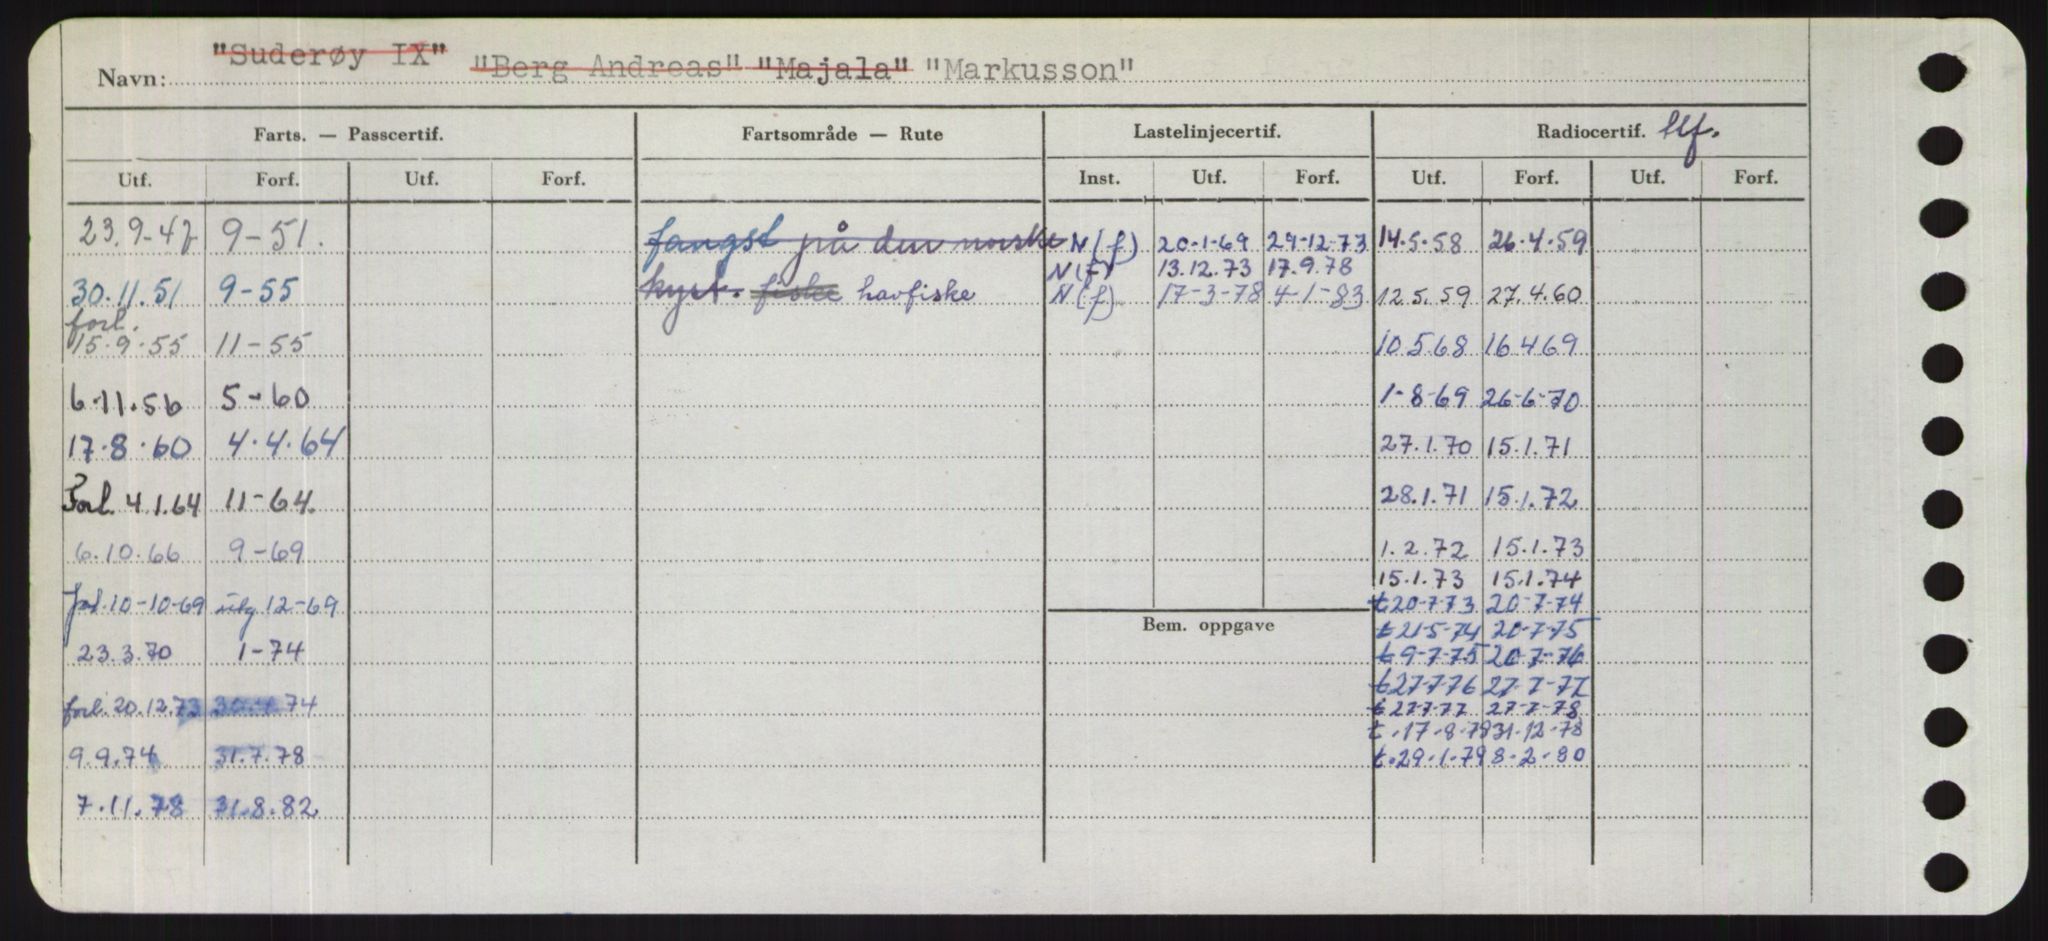 Navn: "Suderøy IX" "Berg Andreas" "Majala" "Markusson"
Farts. — Passcertif. Fartsområde — Rute Lastelinjecertif. Radiocertif. tlf.
Utf. Forf. Utf. Forf. Inst. Utf. Forf. Utf. Forf. Utf. Forf.
23.9-47 9-51. fangst på den norske N(f) 20-1-69 29-12-73 14.5.58 26.4.59
N(f) 13.12.73 17.9.78
30.11.51 9-55 kyst. fiske havfiske N(f) 17-3-78 4-1-83 12.5.59 27.4.60
forl.
15.9.55 11-55 10.5.68 16.4.69
6.11.56 5-60 1-8-69 26-6-70
17.8.60 4.4.64 27.1.70 15.1.71
Forl. 4.1.64 11-64. 28.1.71 15.1.72
6.10.66 9-69 1.2.72 15.1.73
15.1.73 15.1.74
10-10-69 12-69 t 20-7-73 20-7-74
Bem. oppgave
t 21-5-74 20-7-75
23.3.70 1-74 t 9-7-75 20-7-76
t 27-7-76 27-7-77
forl. 20.12.73 30.4.74 t 27-7-77 27-7-78
t.17-8-78 31-12-78
9.9.74 31.7.78 t.29-1-79 8-2-80
7.11.78 31.8.82